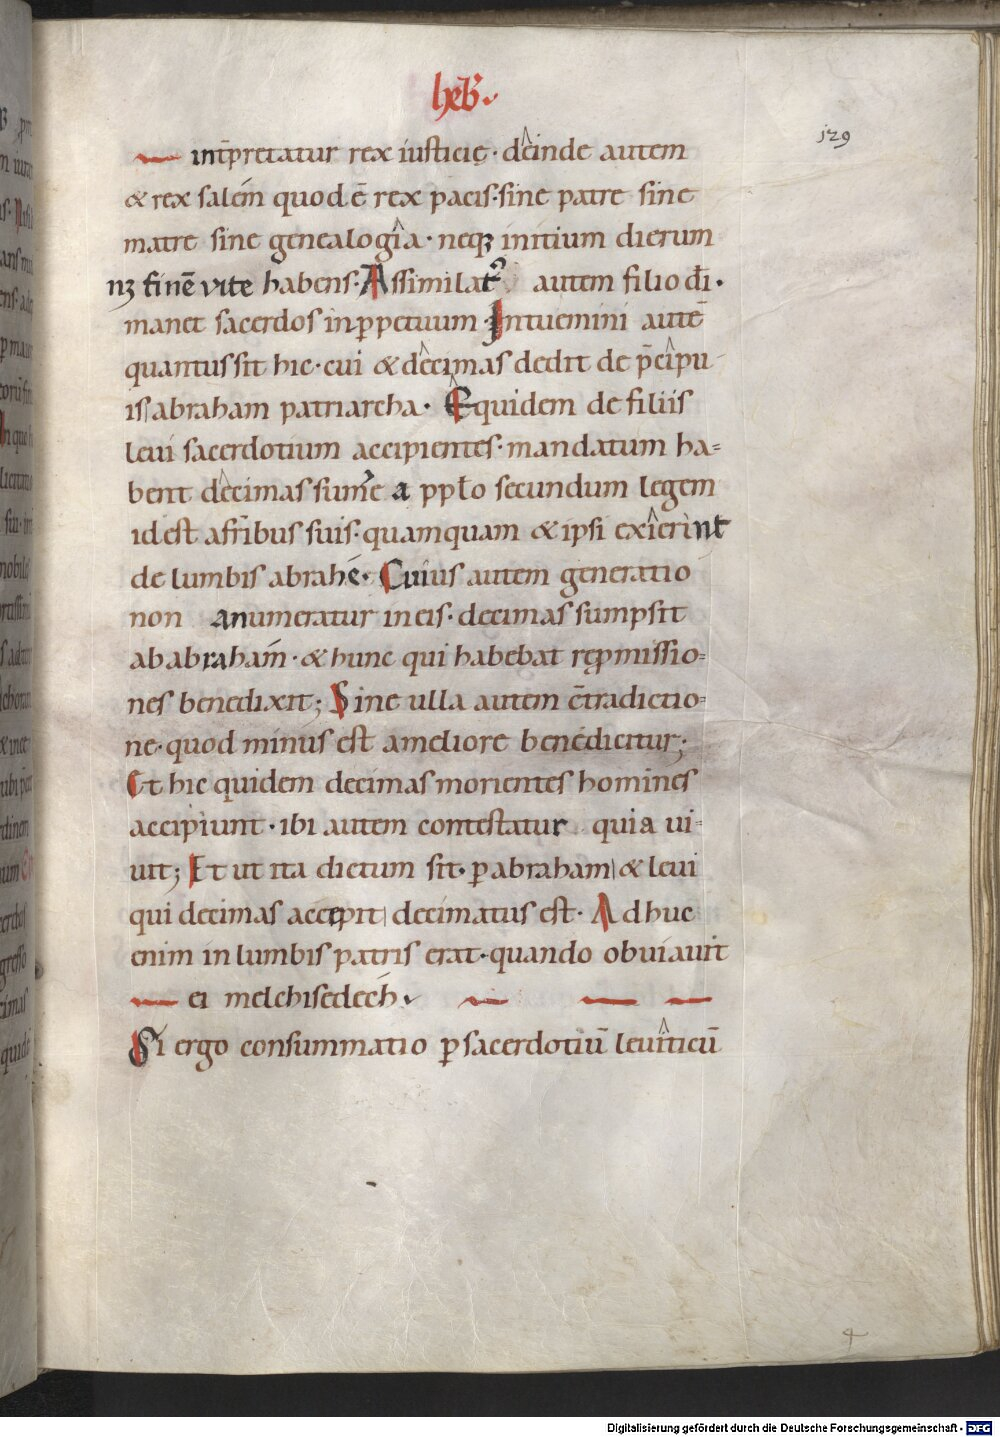 heb̅.
129
int̅pretatur rex iusticię · deinde autem
& rex salém quod ē rex pacis · sine patre sine
matre sine genealogia · neqꝫ initium dierum
nꝫ finē vite habens · Assimilat᷒ autem filio di̅ ·
manet sacerdos in ꝑpetuum · Intuemini autē
quantus sit hic · cui & decimas dedit de p̅cipu
is abraham patriarcha · Equidem de filiis
leui sacerdotium accipientes · mandatum ha-
bent decimas sum̅e a pplo̅ secundum legem
id est a fr̅ibus suis · quamquam & ipsi exierint
de lumbis abrahę · Cuius autem generatio
non anumeratur in eis · decimas sumpsit
ab abraham · & hunc qui habebat reꝓmissio-
nes benedixit; Sine ulla autem c̅tradictio-
ne · quod minus est a meliore benedicitur;
Et hic quidem decimas morientes homines
accipiunt · ibi autem contestatur quia ui-
uit; Et ut ita dictum sit · ꝑ abraham & leui
qui decimas accepit decimatus est · Adhuc
enim in lumbis patris erat · quando obuiauit
ei melchisedech.
Si ergo consummatio ꝑ sacerdotiū leuiticū
Digitalisierung gefördert durch die Deutsche Forschungsgemeinschaft - DFG